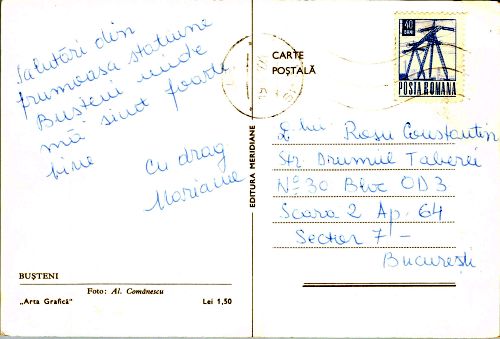 Salutări din
frumoasa statiune
Busteni unde
mă simt foarte
bine
Cu drag
Mariana
BUȘTENI
Foto: Al. Comănescu
„Arta Grafică"
Lei 1,50
EDITURA MERIDIANE
CARTE
POȘTALĂ
40
BANI
POSTA ROMANA
D lui Rosu Constantin
Str Drumul Taberei
No 30 Bloc OD3
Scara 2 Ap. 64
Sector 7 -
București